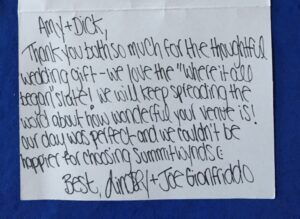 Amy + Dick,
Thank you both so much for the thoughtful
wedding gift - we love the "where it all
began" slate! we will keep spreading the
word about how wonderful your venue is!
our day was perfect and we couldn't be
happier for choosing Summit Wynds (:
Best, Lindsay + Joe Gionfriddo